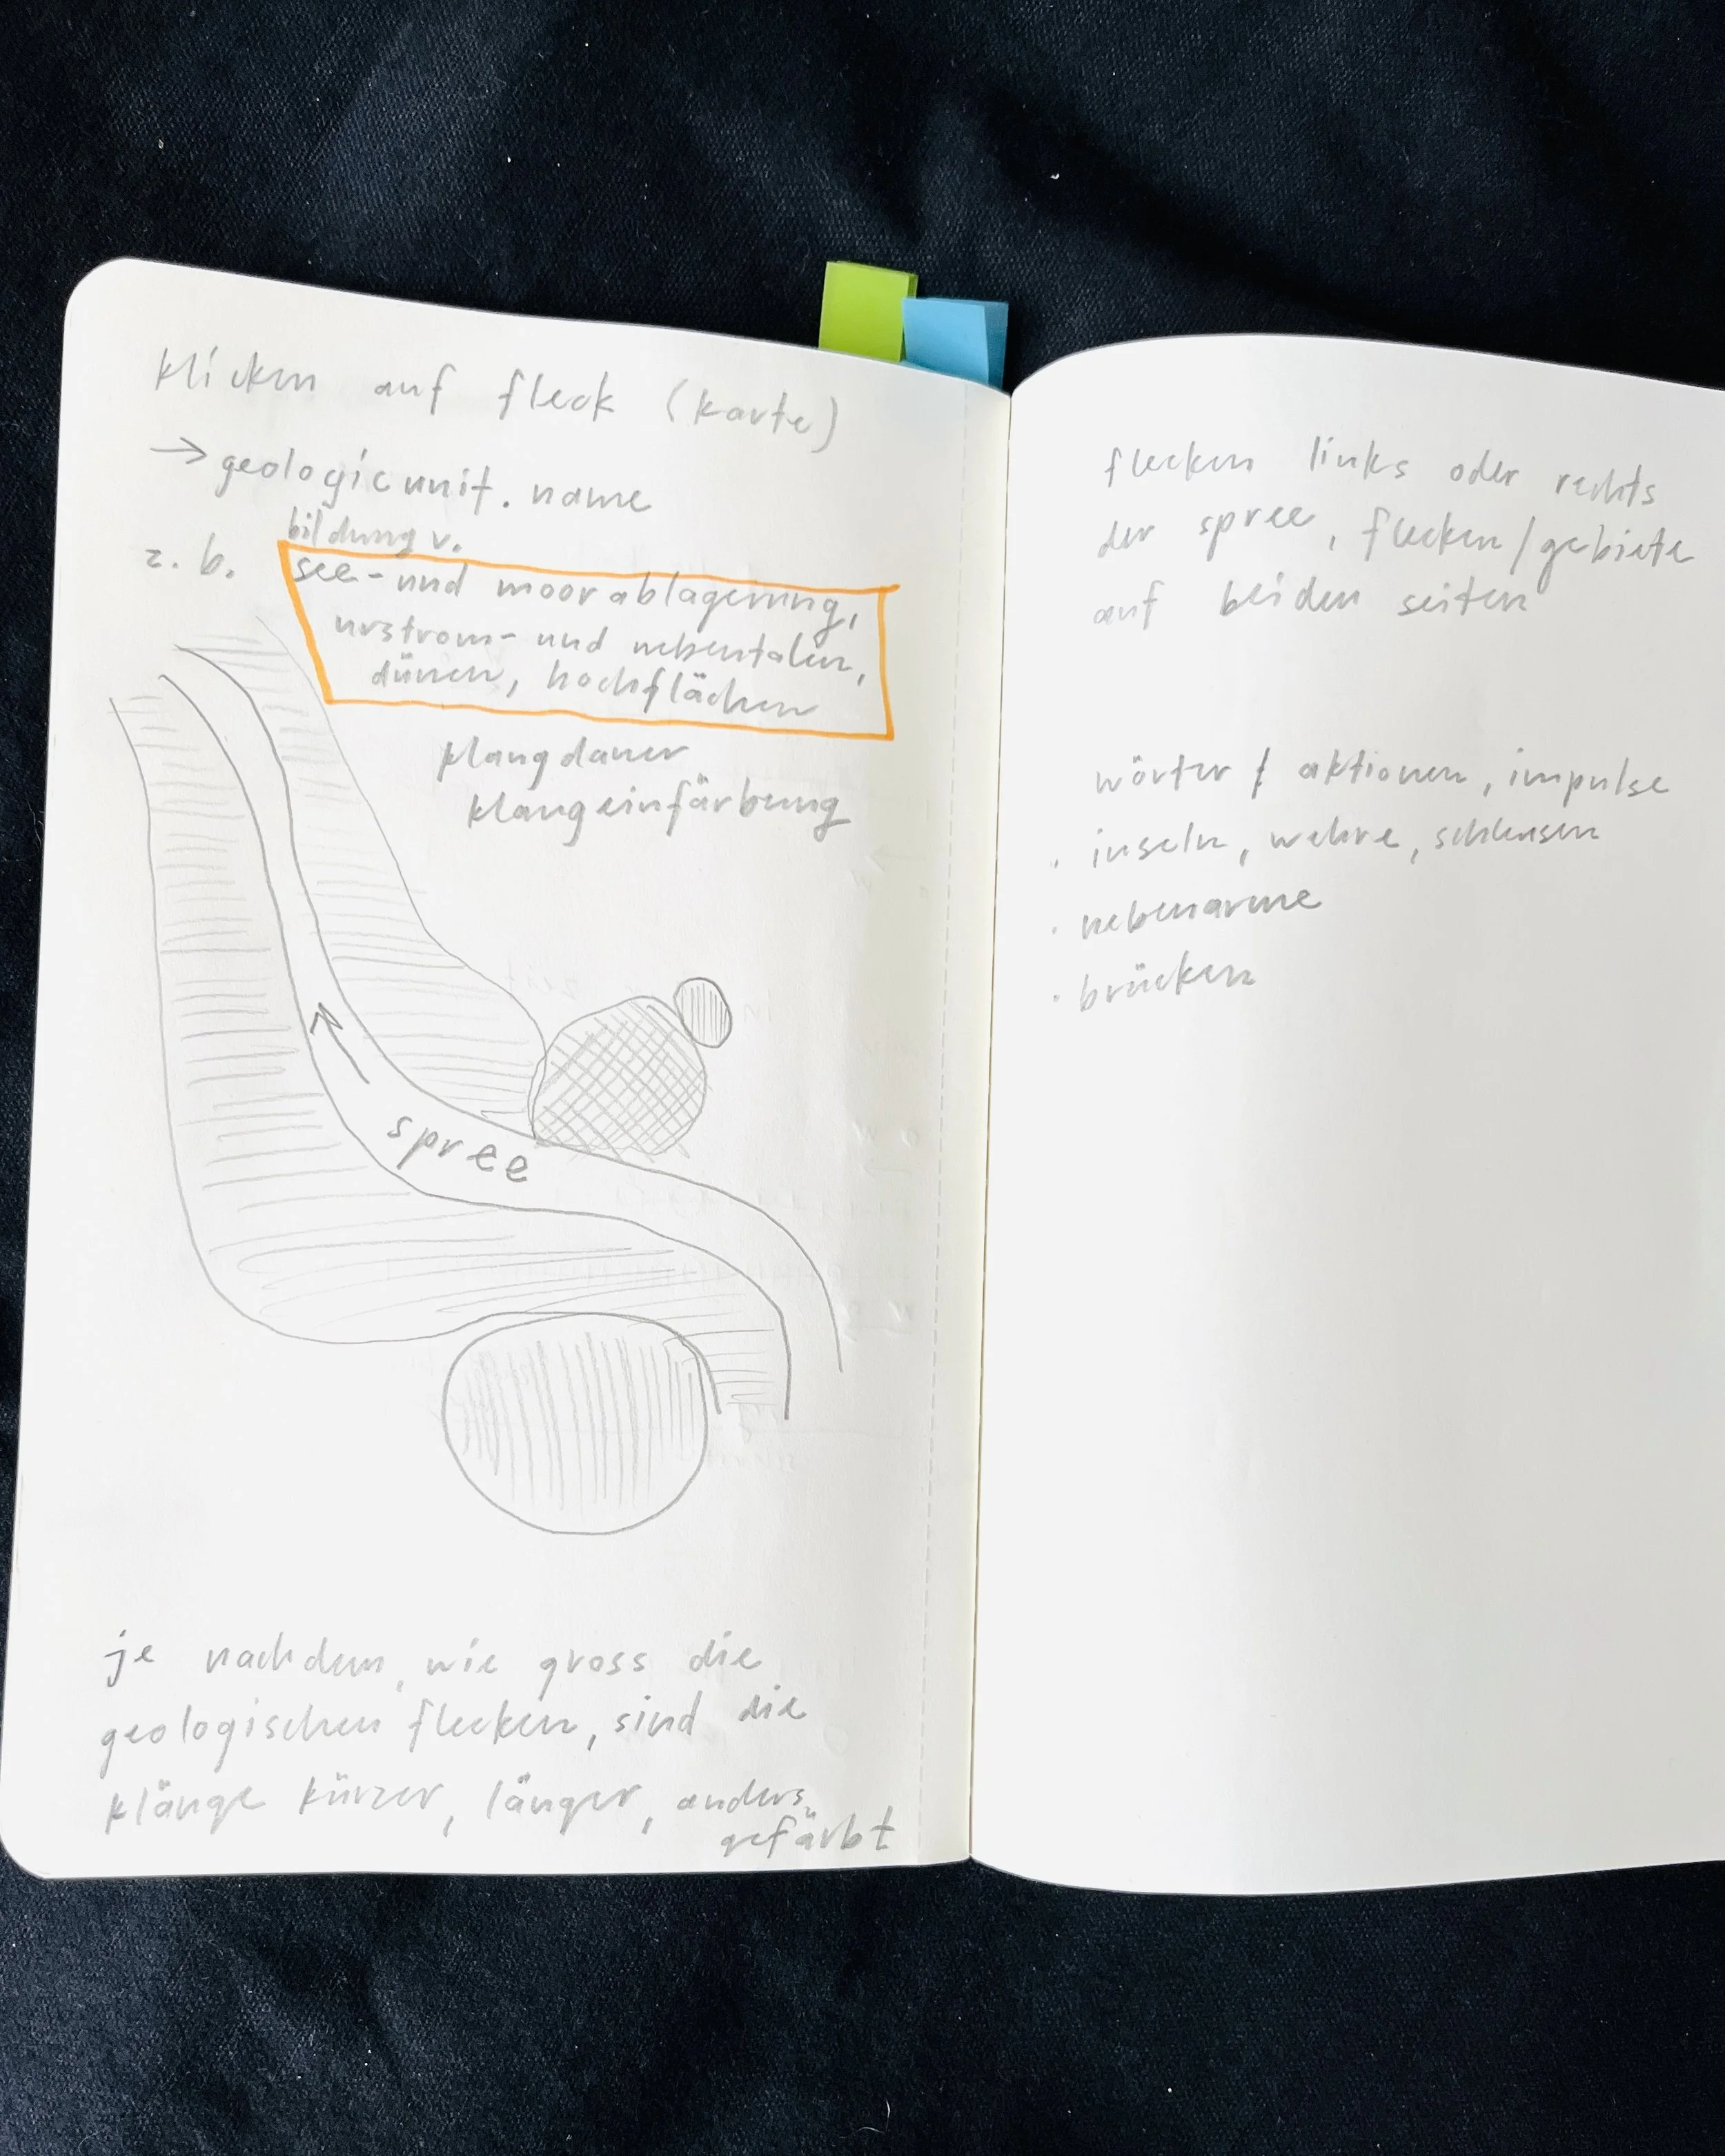 klicken auf fleck (karte)
→ geologicunit. name
bildung v.
z. b. see- und moorablagerung,
urstrom- und nebentälern,
dünen, hochflächen
klangdauer
klangeinfärbung
spree
je nachdem, wie gross die
geologischen flecken, sind die
klänge kürzer, länger, anders
gefärbt
flecken links oder rechts
der spree, flecken/gebiete
auf beiden seiten
wörter / aktionen, impulse
· inseln, wehre, schleusen
· nebenarme
· brücken